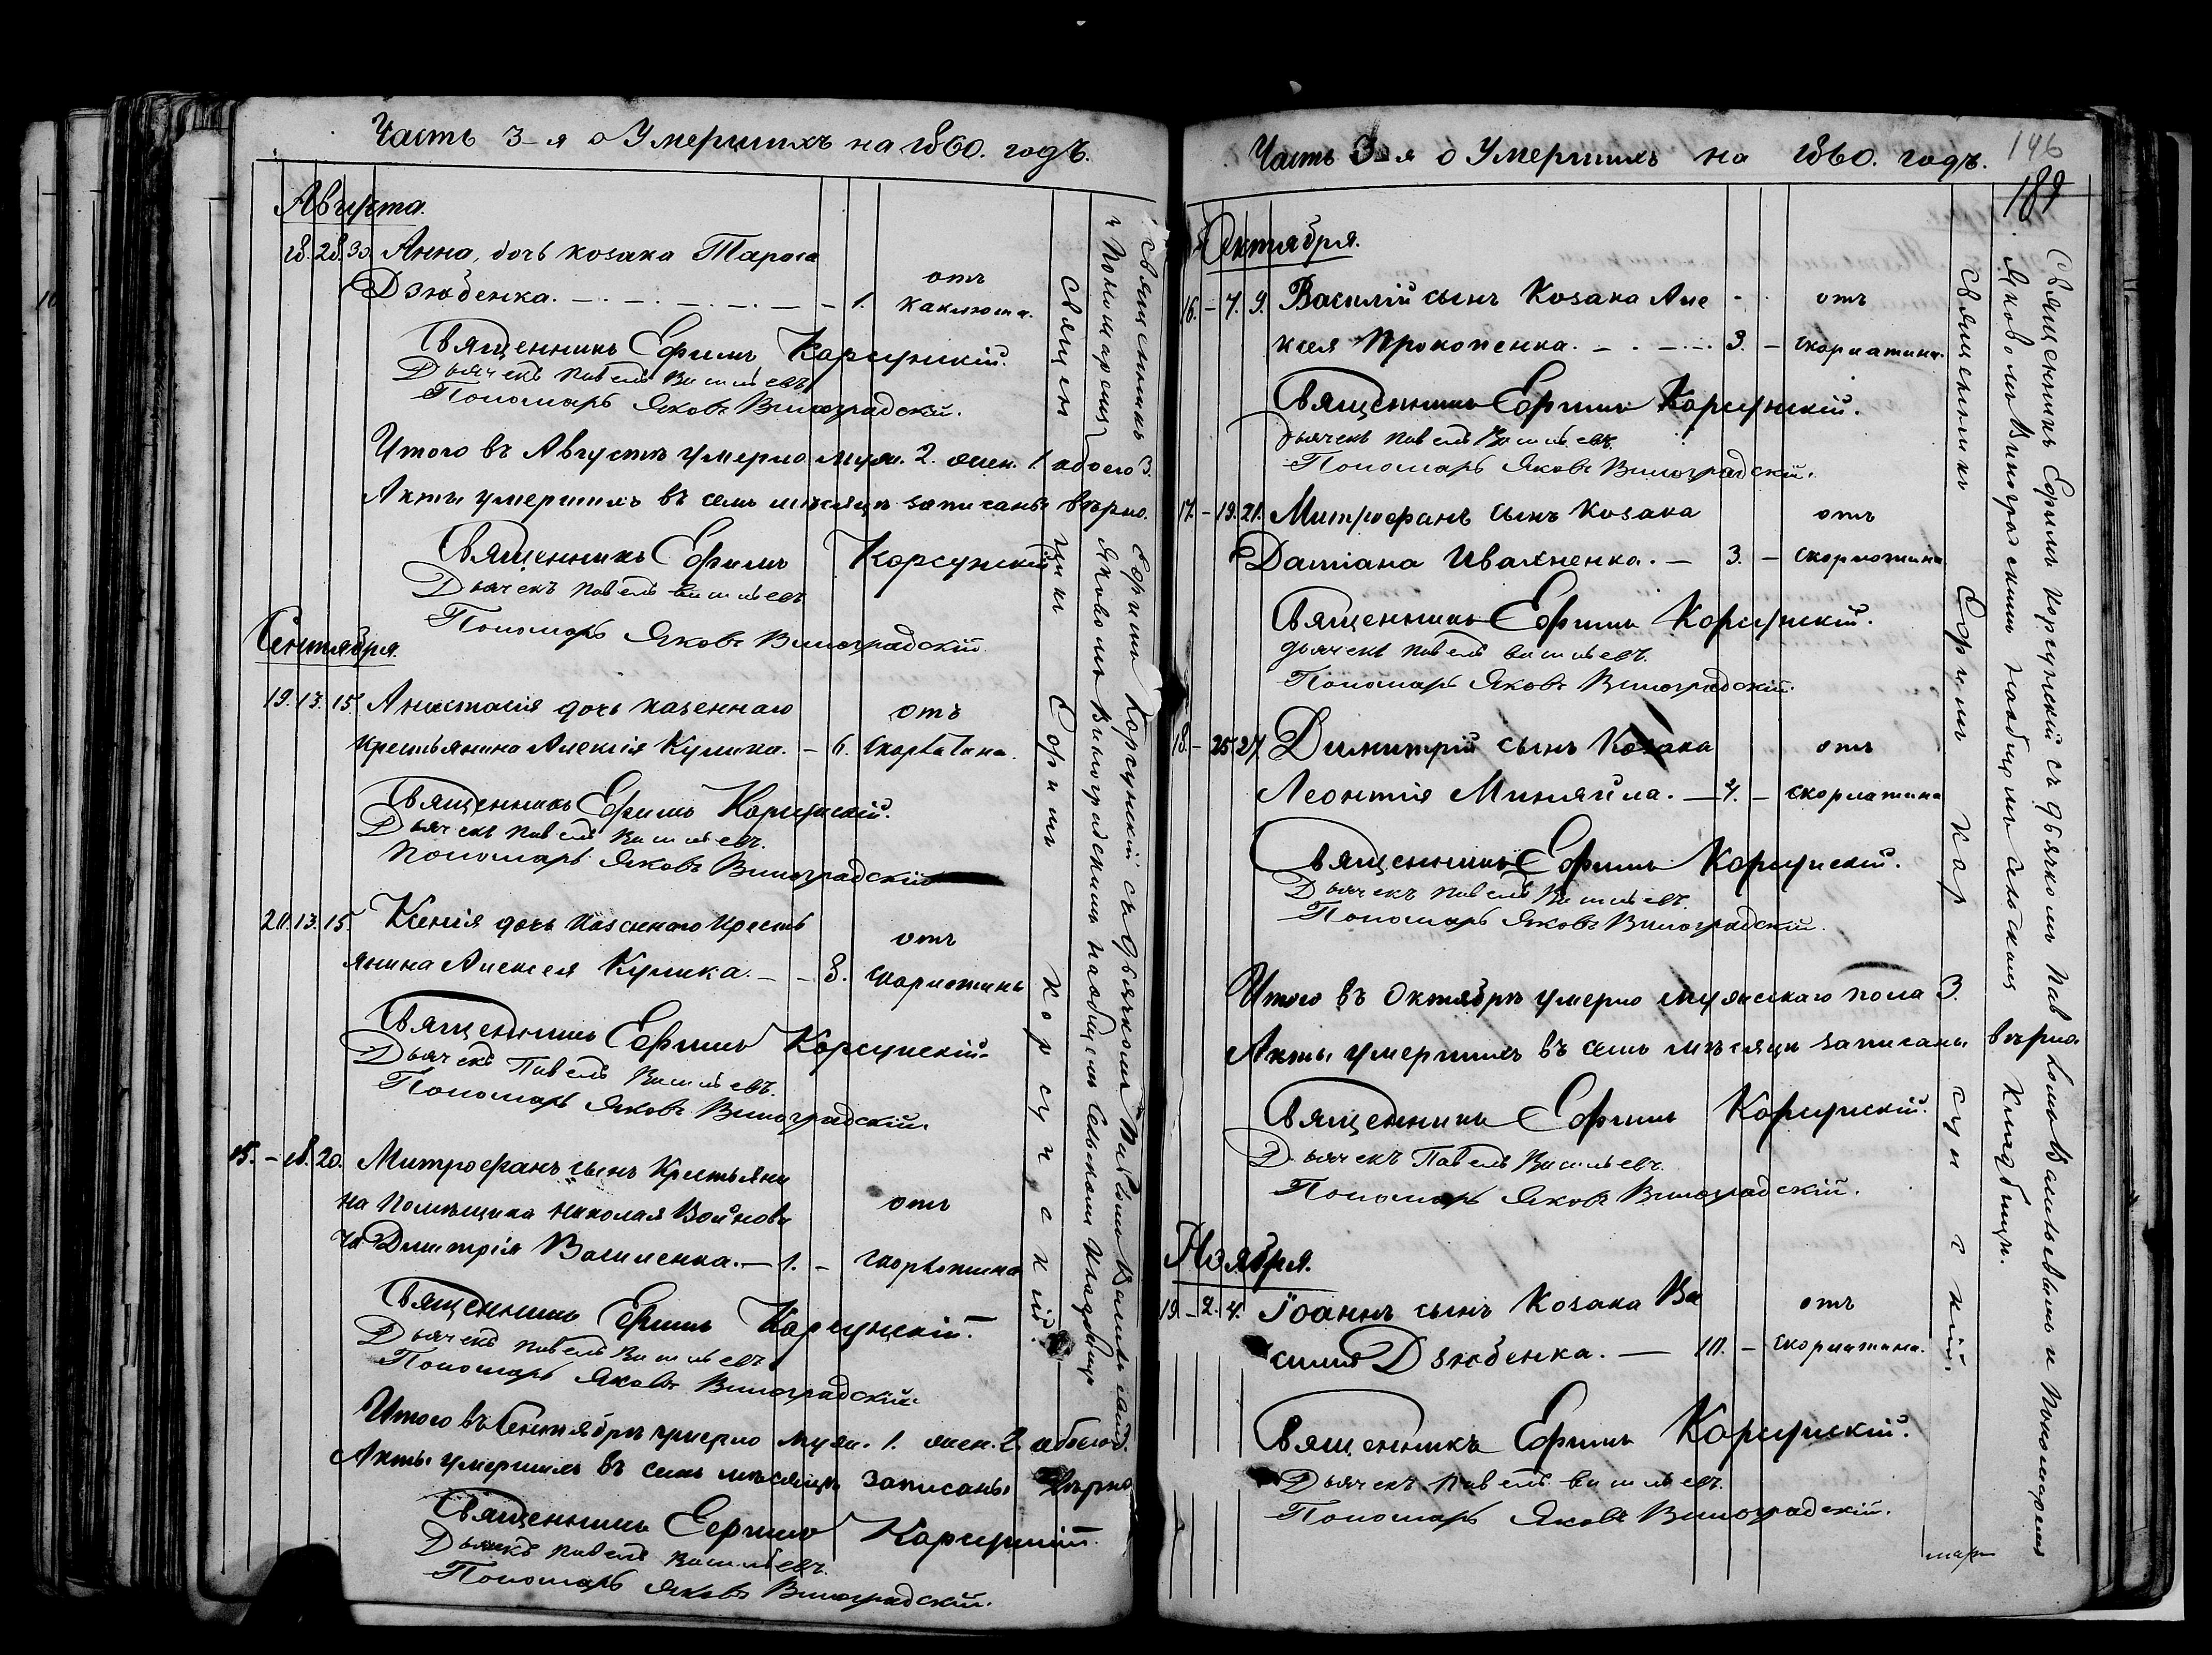 Часть 3-я о Умершихъ на 1860. годъ.
Августа.
18. 28. 30. Анна, дочь козака Тараса
Дзюбенка. — 1. отъ
каклюша.
Священникъ Ефимъ Корсунскій.
Дьячекъ Павелъ Васильевъ
Пономарь Яковъ Виноградскій.
Итого въ Августѣ умерло муж. 2. жен. 1. обоего 3.
Акты умершихъ въ семъ мѣсяцѣ записаны вѣрно.
Священникъ Ефимъ Корсунскій
Дьячекъ Павелъ Васильевъ
Пономарь Яковъ Виноградскій
Сентября.
19. 13. 15. Анастасія дочь казеннаго отъ
крестьянина Алексія Кулика. — 6. скорлатина.
Священникъ Ефимъ Корсунскій.
Дьячекъ Павелъ Васильевъ.
Пономарь Яковъ Виноградскій
20. 13. 15. Ксенія дочь казеннаго кресть
янина Алексея Кулика. — 3. отъ
скорлатины
Священникъ Ефимъ Корсунскій.
Дьячекъ Павелъ Васильевъ.
Пономарь Яковъ Виноградскій.
15. – 18. 20. Митрофанъ сынъ Крестьяни
на Помѣщика Николая Войнови отъ
ча Дмитрія Василенка. — 1. – скорлатина
Священникъ Ефимъ Корсунскій.
Дьячекъ Павелъ Васильевъ
Пономарь Яковъ Виноградскій.
Итого въ Сентябрѣ умерло муж. 1. жен. 2. обоего 3.
Акты умершихъ въ семъ мѣсяцѣ записаны вѣрно
Священникъ Ефимъ Корсунскій.
Дьячекъ Павелъ Васильевъ.
Пономарь Яковъ Виноградскій.
Священникъ Ефимъ Корсунскій.
Священникъ Ефимъ Корсунскій съ дьячкомъ Павломъ Васильевымъ
и Пономаремъ Яковомъ Виноградскимъ на общемъ сельскомъ кладбищѣ
Часть 3-я о Умершихъ на 1860. годъ.
146
189
Октября.
16. – 7. 9. Василій сынъ Козака Але отъ
ксея Прокопенка. — 3. – скорлатина.
Священникъ Ефимъ Корсунскій.
Дьячекъ Павелъ Васильевъ.
Пономарь Яковъ Виноградскій.
17. – 19. 21. Митрофанъ сынъ Козака отъ
Даміана Ивахненка. — 3. – скорлатина
Священникъ Ефимъ Корсунскій.
Дьячекъ Павелъ Васильевъ.
Пономарь Яковъ Виноградскій.
18. – 25. 27. Димитрій сынъ Козака отъ
Леонтія Миняйла. — 4. – скорлатина
Священникъ Ефимъ Корсунскій.
Дьячекъ Павелъ Васильевъ.
Пономарь Яковъ Виноградскій.
Итого въ Октябрѣ умерло мужескаго пола 3.
Акты умершихъ въ семъ мѣсяцѣ записаны вѣрно.
Священникъ Ефимъ Корсунскій.
Дьячекъ Павелъ Васильевъ.
Пономарь Яковъ Виноградскій.
Ноября.
19. – 2. 4. Іоаннъ сынъ Козака Ва отъ
силія Дзюбенка. — 10. – скорлатина.
Священникъ Ефимъ Корсунскій.
Дьячекъ Павелъ Васильевъ.
Пономарь Яковъ Виноградскій.
Священникъ Ефимъ Корсунскій.
Священникъ Ефимъ Корсунскій съ дьячкомъ Павломъ Васильевымъ и Пономаремъ
Яковомъ Виноградскимъ на общемъ сельскомъ кладбищѣ.